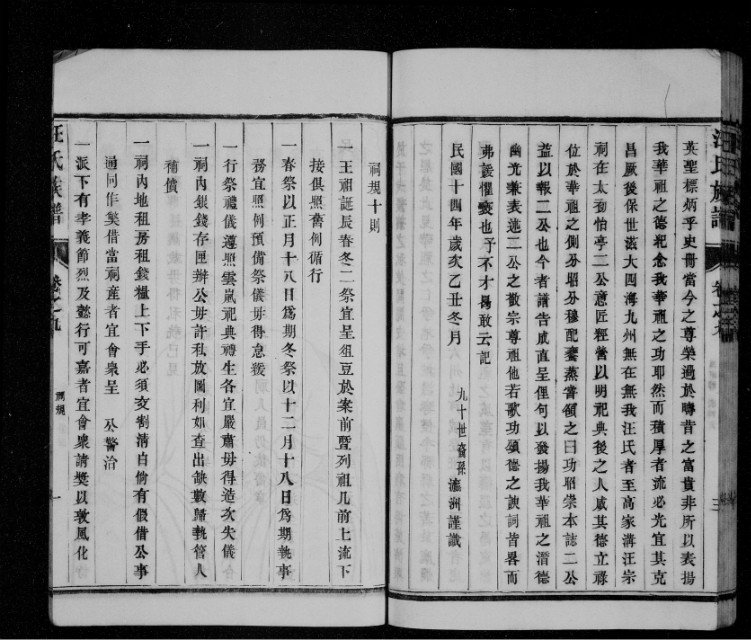 英聖標炳乎史冊當今之尊榮過於疇昔之富貴非所以表揚
我華祖之德紀念我華祖之功耶然而積厚者流必光宜其克
昌厥後保世滋大四海九州無在無我汪氏者至高家溝汪宗
祠在太劝怡亭二公意匠經營以明祀典後之人感其德立祿
位於華祖之側分昭分穆配饗蒸嘗額之曰功昭崇本誌二公
益以報二公也今者譜告成直呈俚句以發揚我華祖之潛德
幽光兼表述二公之敬宗尊祖他若歌功頌德之諛詞皆畧而
弗談懼褻也予不才揚敢云記
九十世裔孫瀛洲謹識
民國十四年歲次乙丑冬月
汪氏族譜
卷之九
三
祠規十則
一王祖誕辰春冬二祭宜呈俎豆於案前暨列祖几前上流下
接俱照舊例循行
一春祭以正月十八日爲期冬祭以十二月十八日爲期執事
務宜照例預備祭儀毋得怠緩
一行祭禮儀遵照雲嵐祀典禮生各宜嚴肅毋得造次失儀
一祠內銀錢存匣辦公毋許私放圖利如查出缺數歸執管人
補償
一祠內地租房租錢糧上下手必須交割清白倘有假借公事
通同作獘借當祠產者宜會衆呈 公警治
一派下有孝義節烈及懿行可嘉者宜會衆請獎以敦風化
汪氏族譜
卷之九
祠規
一